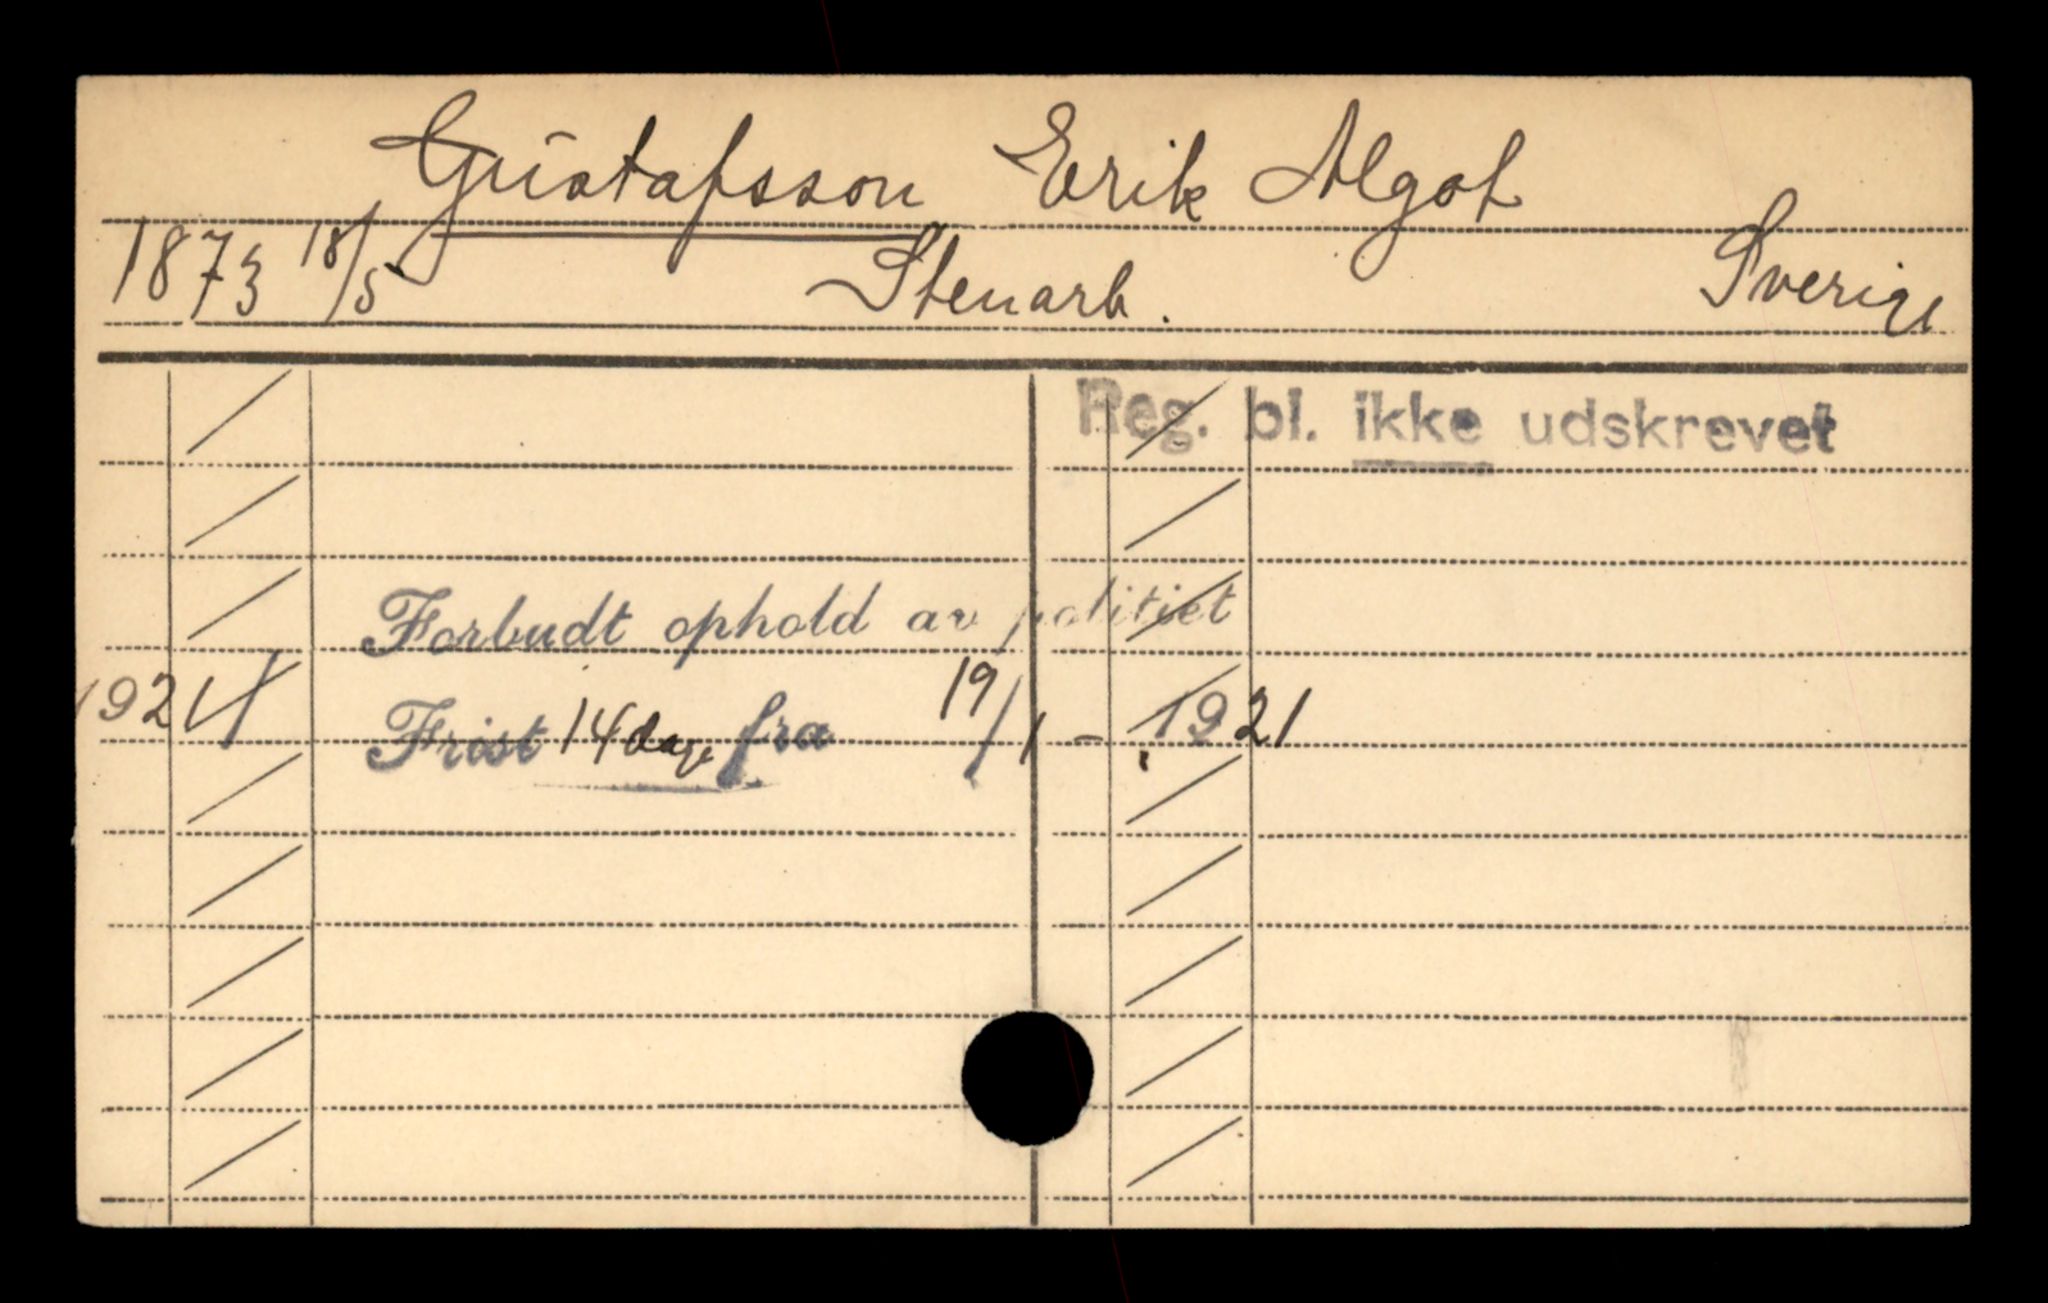 Gustafsson Erik Algot
1873 18/5 Stenarb. Sverige
Reg. bl. ikke udskrevet
Forbudt ophold av politiet
1921 Frist 14 dage fra 19/1 - 1921